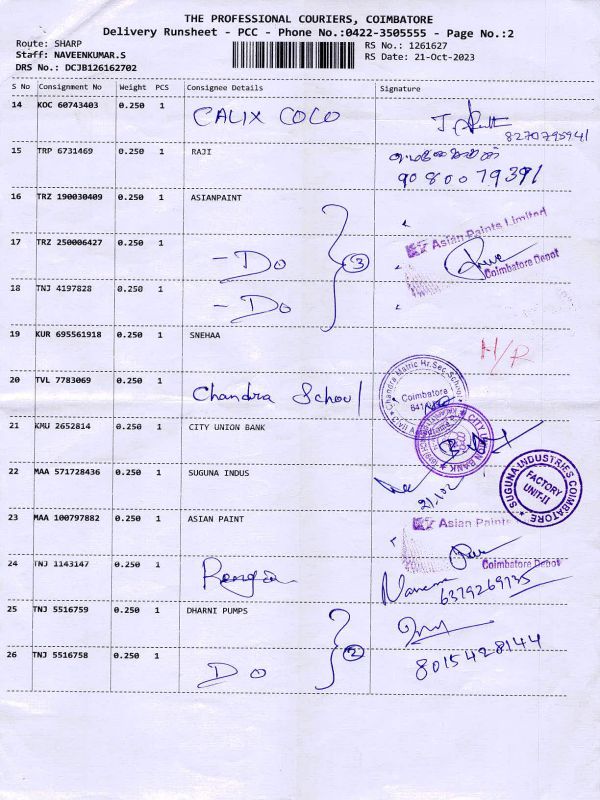 THE PROFESSIONAL COURIERS, COIMBATORE
Delivery Runsheet - PCC - Phone No.:0422-3505555 - Page No.:2
Route: SHARP RS No.: 1261627
Staff: NAVEENKUMAR.S RS Date: 21-Oct-2023
DRS No.: DCJB126162702
S No Consignment No Weight PCS Consignee Details Signature
14 KOC 60743403 0.250 1 CALIX COCO
8270795941
15 TRP 6731469 0.250 1 RAJI
9080079391
16 TRZ 190030409 0.250 1 ASIANPAINT
Asian Paints Limited
Coimbatore Depot
17 TRZ 250006427 0.250 1 - Do 3
18 TNJ 4197828 0.250 1 - Do
19 KUR 695561918 0.250 1 SNEHAA H/R
20 TVL 7783069 0.250 1 Chandra School
Chandra Matric Hr.Sec.School
Coimbatore
641
21 KMU 2652814 0.250 1 CITY UNION BANK
CITY UNION BANK
22 MAA 571728436 0.250 1 SUGUNA INDUS
SUGUNA INDUSTRIES COIMBATORE
FACTORY
UNIT-II
23 MAA 100797882 0.250 1 ASIAN PAINT
Asian Paints
Coimbatore Depot
24 TNJ 1143147 0.250 1
6379269735
25 TNJ 5516759 0.250 1 DHARNI PUMPS
2
8015428144
26 TNJ 5516758 0.250 1 DO